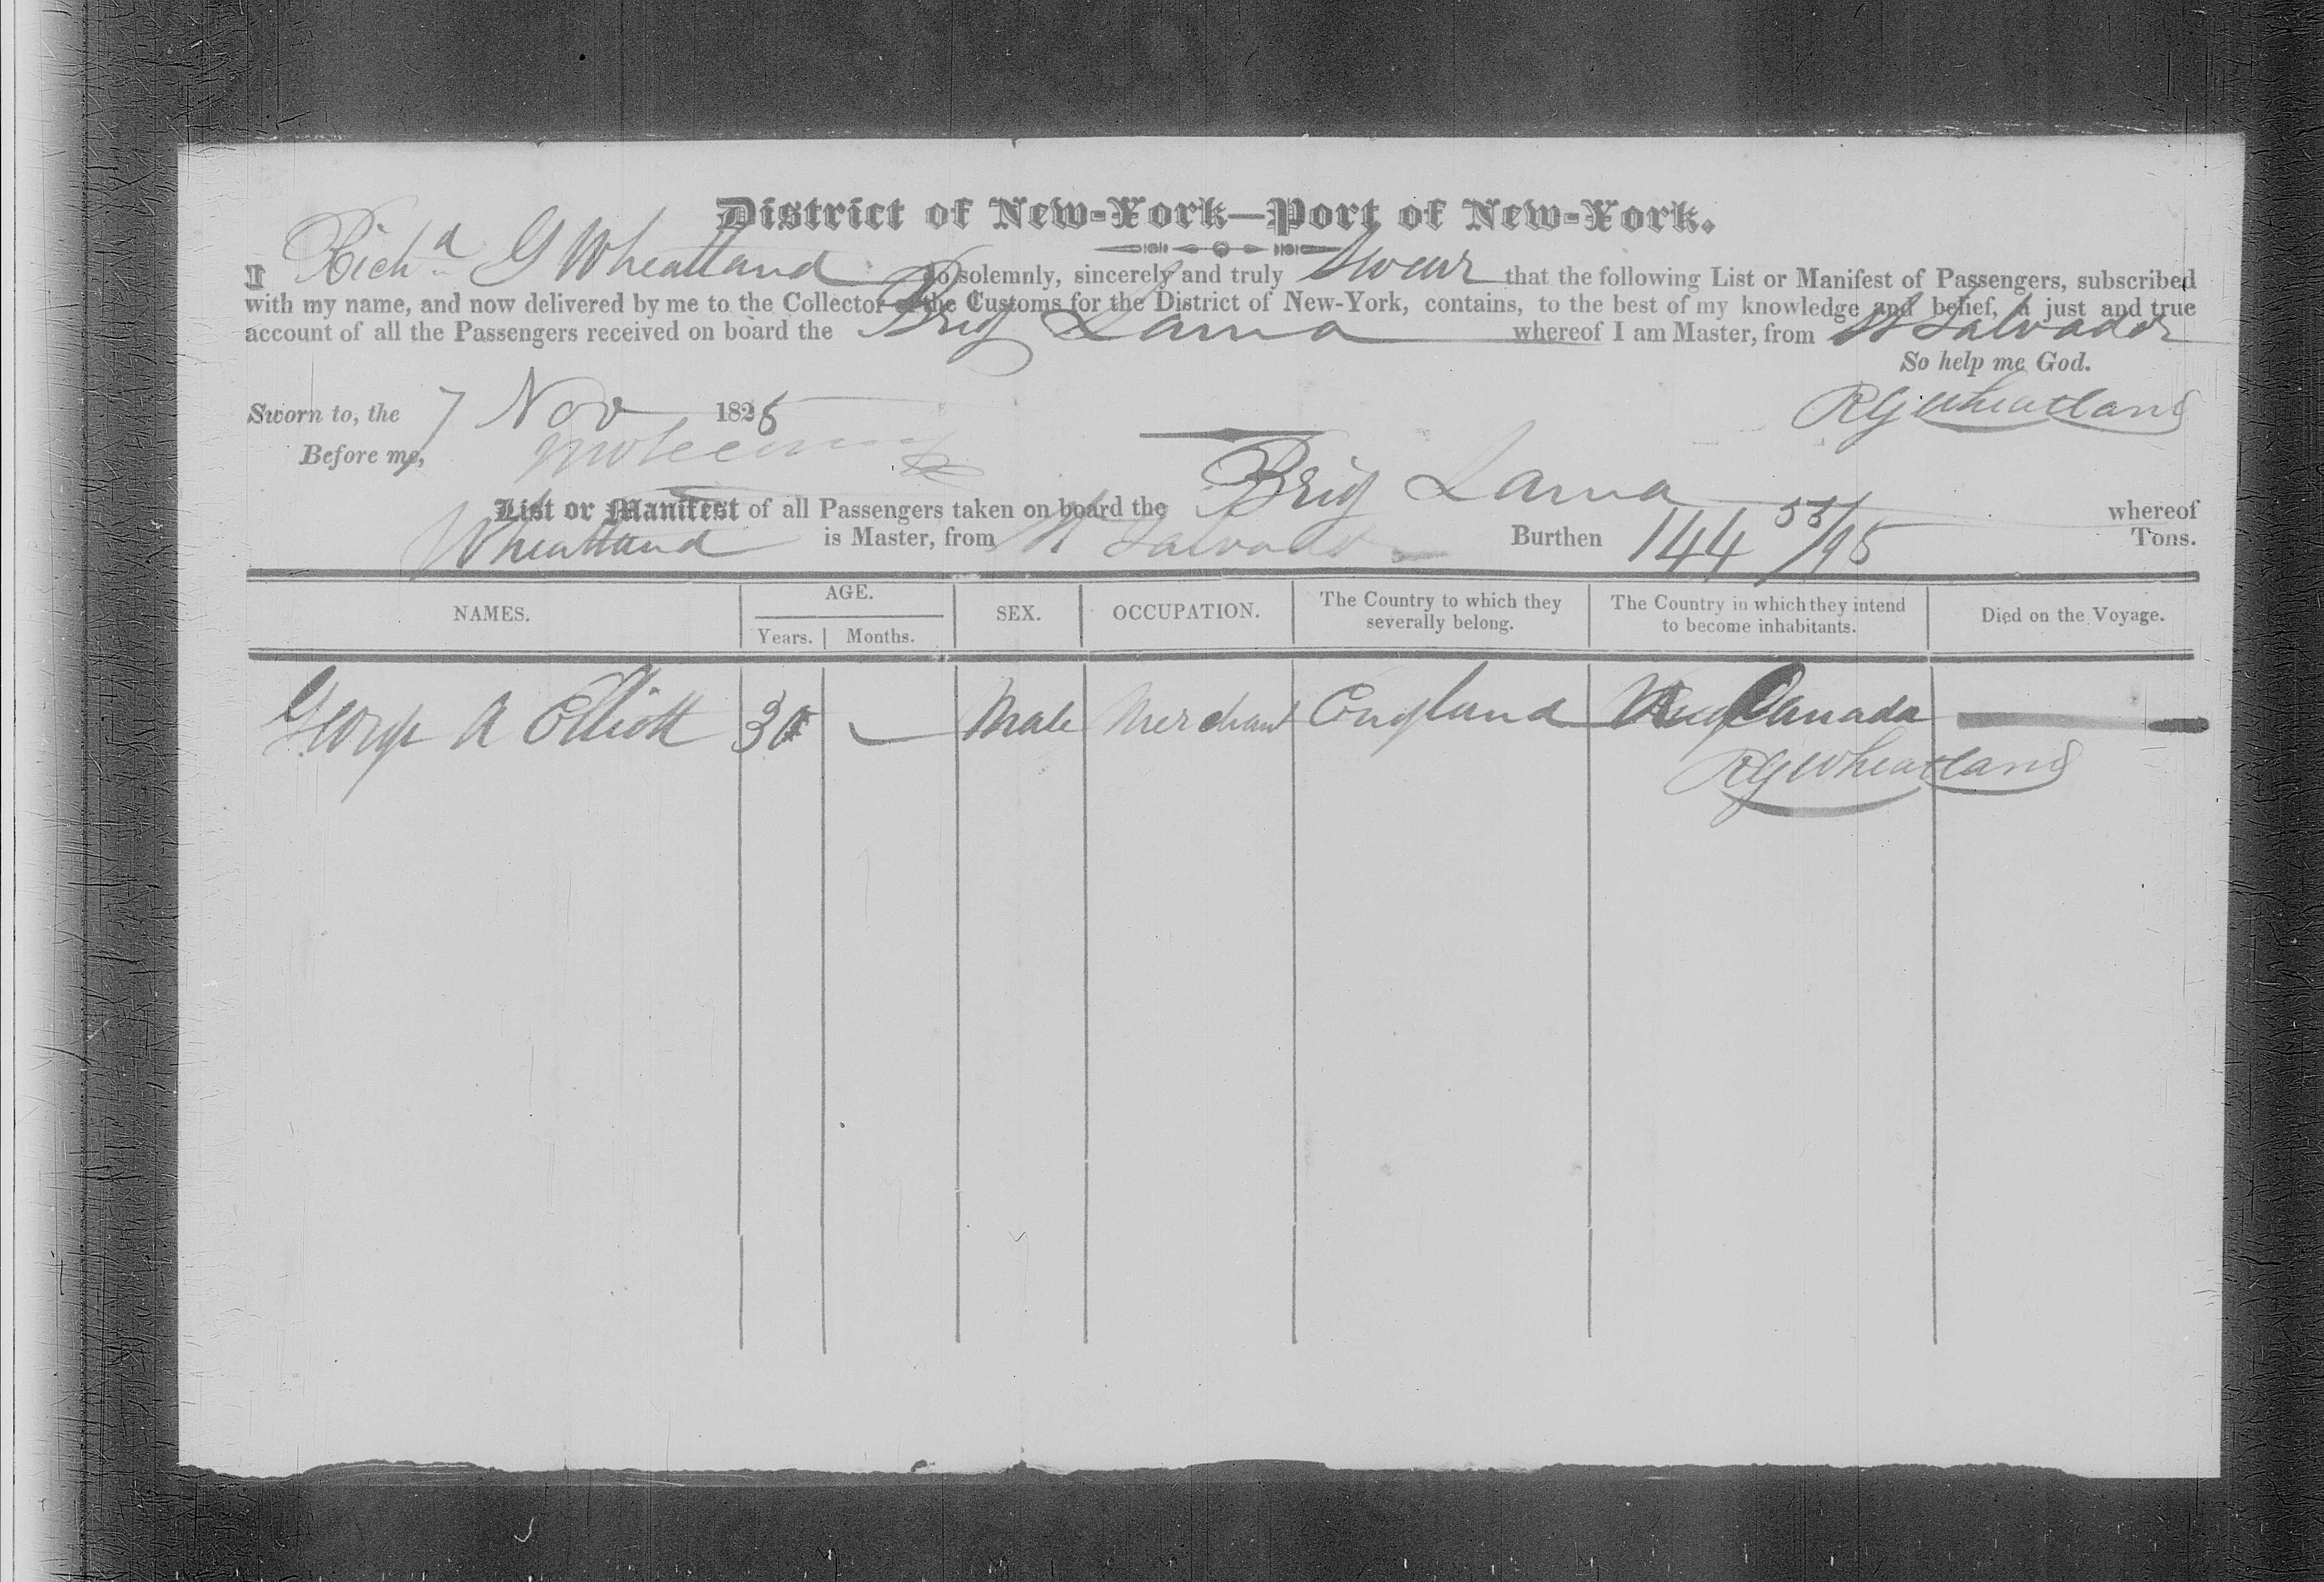 District of New-York—Port of New-York.
I Richd G Wheatland do solemnly, sincerely and truly Swear that the following List or Manifest of Passengers, subscribed
with my name, and now delivered by me to the Collector of the Customs for the District of New-York, contains, to the best of my knowledge and belief, a just and true
account of all the Passengers received on board the Brig Lama whereof I am Master, from St Salvador
So help me God.
Sworn to, the 7 Nov 1828 RG Wheatland
Before me,
List or Manifest of all Passengers taken on board the Brig Lama whereof
Wheatland is Master, from St Salvador Burthen 144 /95 Tons.
NAMES. AGE. SEX. OCCUPATION. The Country to which they severally belong. The Country in which they intend to become inhabitants. Died on the Voyage.
Years. Months.
George A Elliott Male Merchant England Canada
RG Wheatland